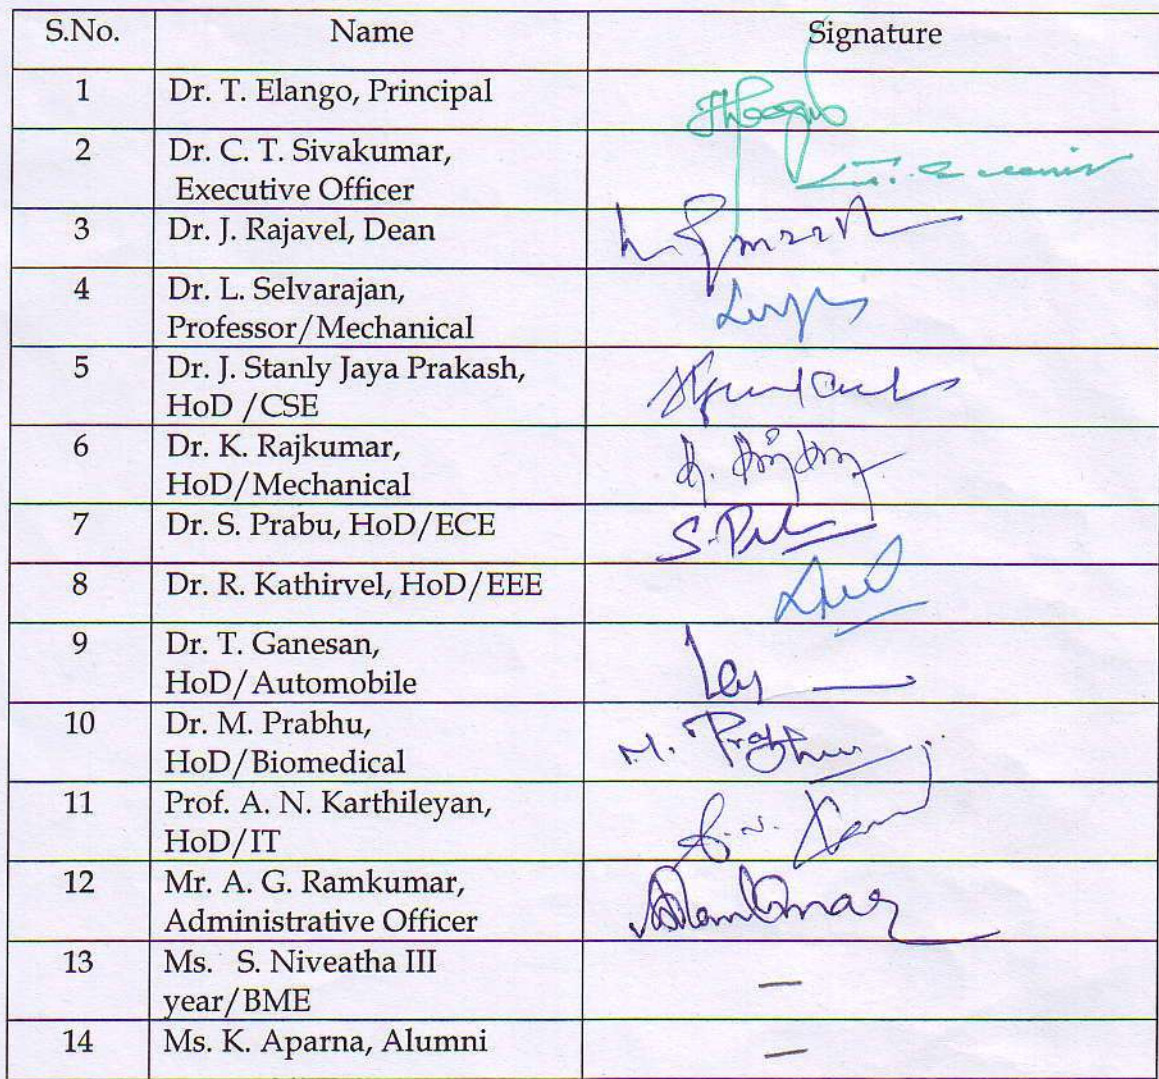 S.No. Name Signature
1 Dr. T. Elango, Principal
2 Dr. C. T. Sivakumar,
Executive Officer
3 Dr. J. Rajavel, Dean
4 Dr. L. Selvarajan,
Professor/Mechanical
5 Dr. J. Stanly Jaya Prakash,
HoD /CSE
6 Dr. K. Rajkumar,
HoD/Mechanical
7 Dr. S. Prabu, HoD/ECE
8 Dr. R. Kathirvel, HoD/EEE
9 Dr. T. Ganesan,
HoD/Automobile
10 Dr. M. Prabhu,
HoD/Biomedical
M. Prabhu
11 Prof. A. N. Karthileyan,
HoD/IT
12 Mr. A. G. Ramkumar,
Administrative Officer
13 Ms. S. Niveatha III
year/BME
—
14 Ms. K. Aparna, Alumni
—